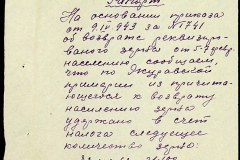 Рапорт
На основании приказа
от 9/IV 943 за №1741
об возврате реквизиро-
ваного зерна от 5-7 февр.
населению сообщаем,
что по Деуравской
примарии из причита-
ющегося к возврату
населению зерна
удержано в счет
налога следующее
количество зерна: